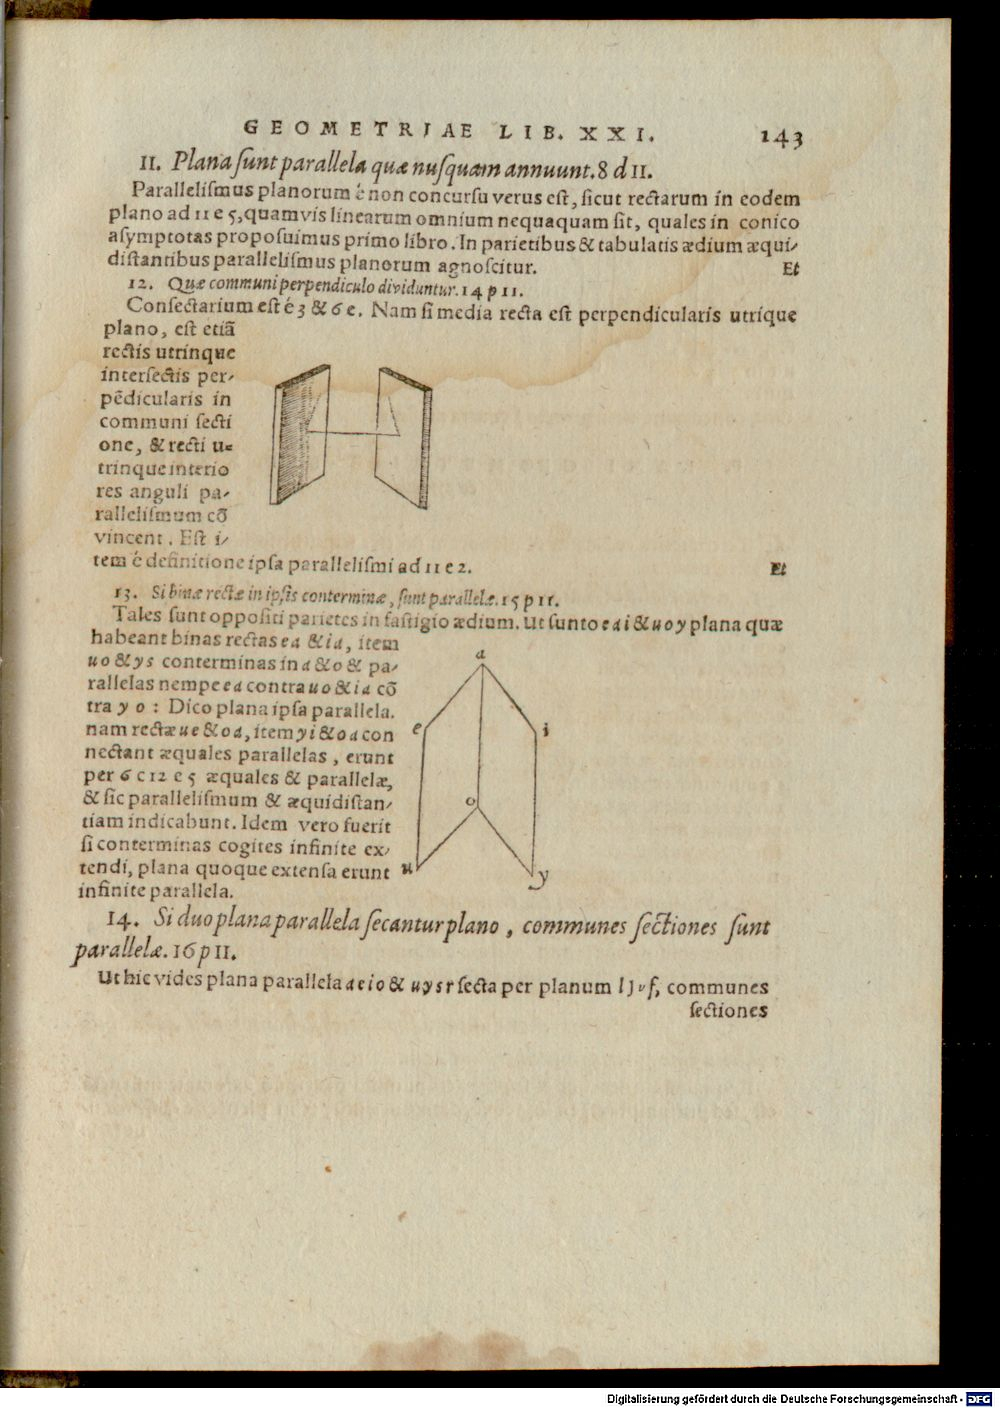 GEOMETRIAE LIB. XXI. 143
11. Plana sunt parallela quæ nusquam annuunt. 8 d 11.
Parallelismus planorum é non concursu verus est, sicut rectarum in eodem
plano ad 11 e 5, quamvis linearum omnium nequaquam sit, quales in conico
asymptotas proposuimus primo libro. In parietibus & tabulatis ædium æqui-
distantibus parallelismus planorum agnoscitur. Et
12. Quæ communi perpendiculo dividuntur. 14 p 11.
Consectarium est é 3 & 6 e. Nam si media recta est perpendicularis utrique
plano, est etiã
rectis utrinque
intersectis per-
pẽdicularis in
communi secti
one, & recti u=
trinque interio
res anguli pa-
rallelismum cõ
vincent. Est i-
tem é definitione ipsa parallelismi ad 11 e 2. Et
13. Si binæ rectæ in ipsis conterminæ, sunt parallelæ. 15 p 11.
Tales sunt oppositi parietes in fastigio ædium. Ut sunto e a i & u o y plana quæ
habeant binas rectas e a & i a, item
u o & y s conterminas in a & o & pa-
rallelas nempe e a contra u o & i a cõ
tra y o : Dico plana ipsa parallela.
nam rectæ u e & o a, item y i & o a con
nectant æquales parallelas, erunt
per 6 c 12 e 5 æquales & parallelæ,
& sic parallelismum & æquidistan-
tiam indicabunt. Idem vero fuerit
si conterminas cogites infinite ex-
tendi, plana quoque extensa erunt
infinite parallela.
a
e
i
o
u
y
14. Si duo plana parallela secantur plano, communes sectiones sunt
parallelæ. 16 p 11.
Ut hic vides plana parallela a e i o & u y s r secta per planum communes
sectiones
Digitalisierung gefördert durch die Deutsche Forschungsgemeinschaft - DFG